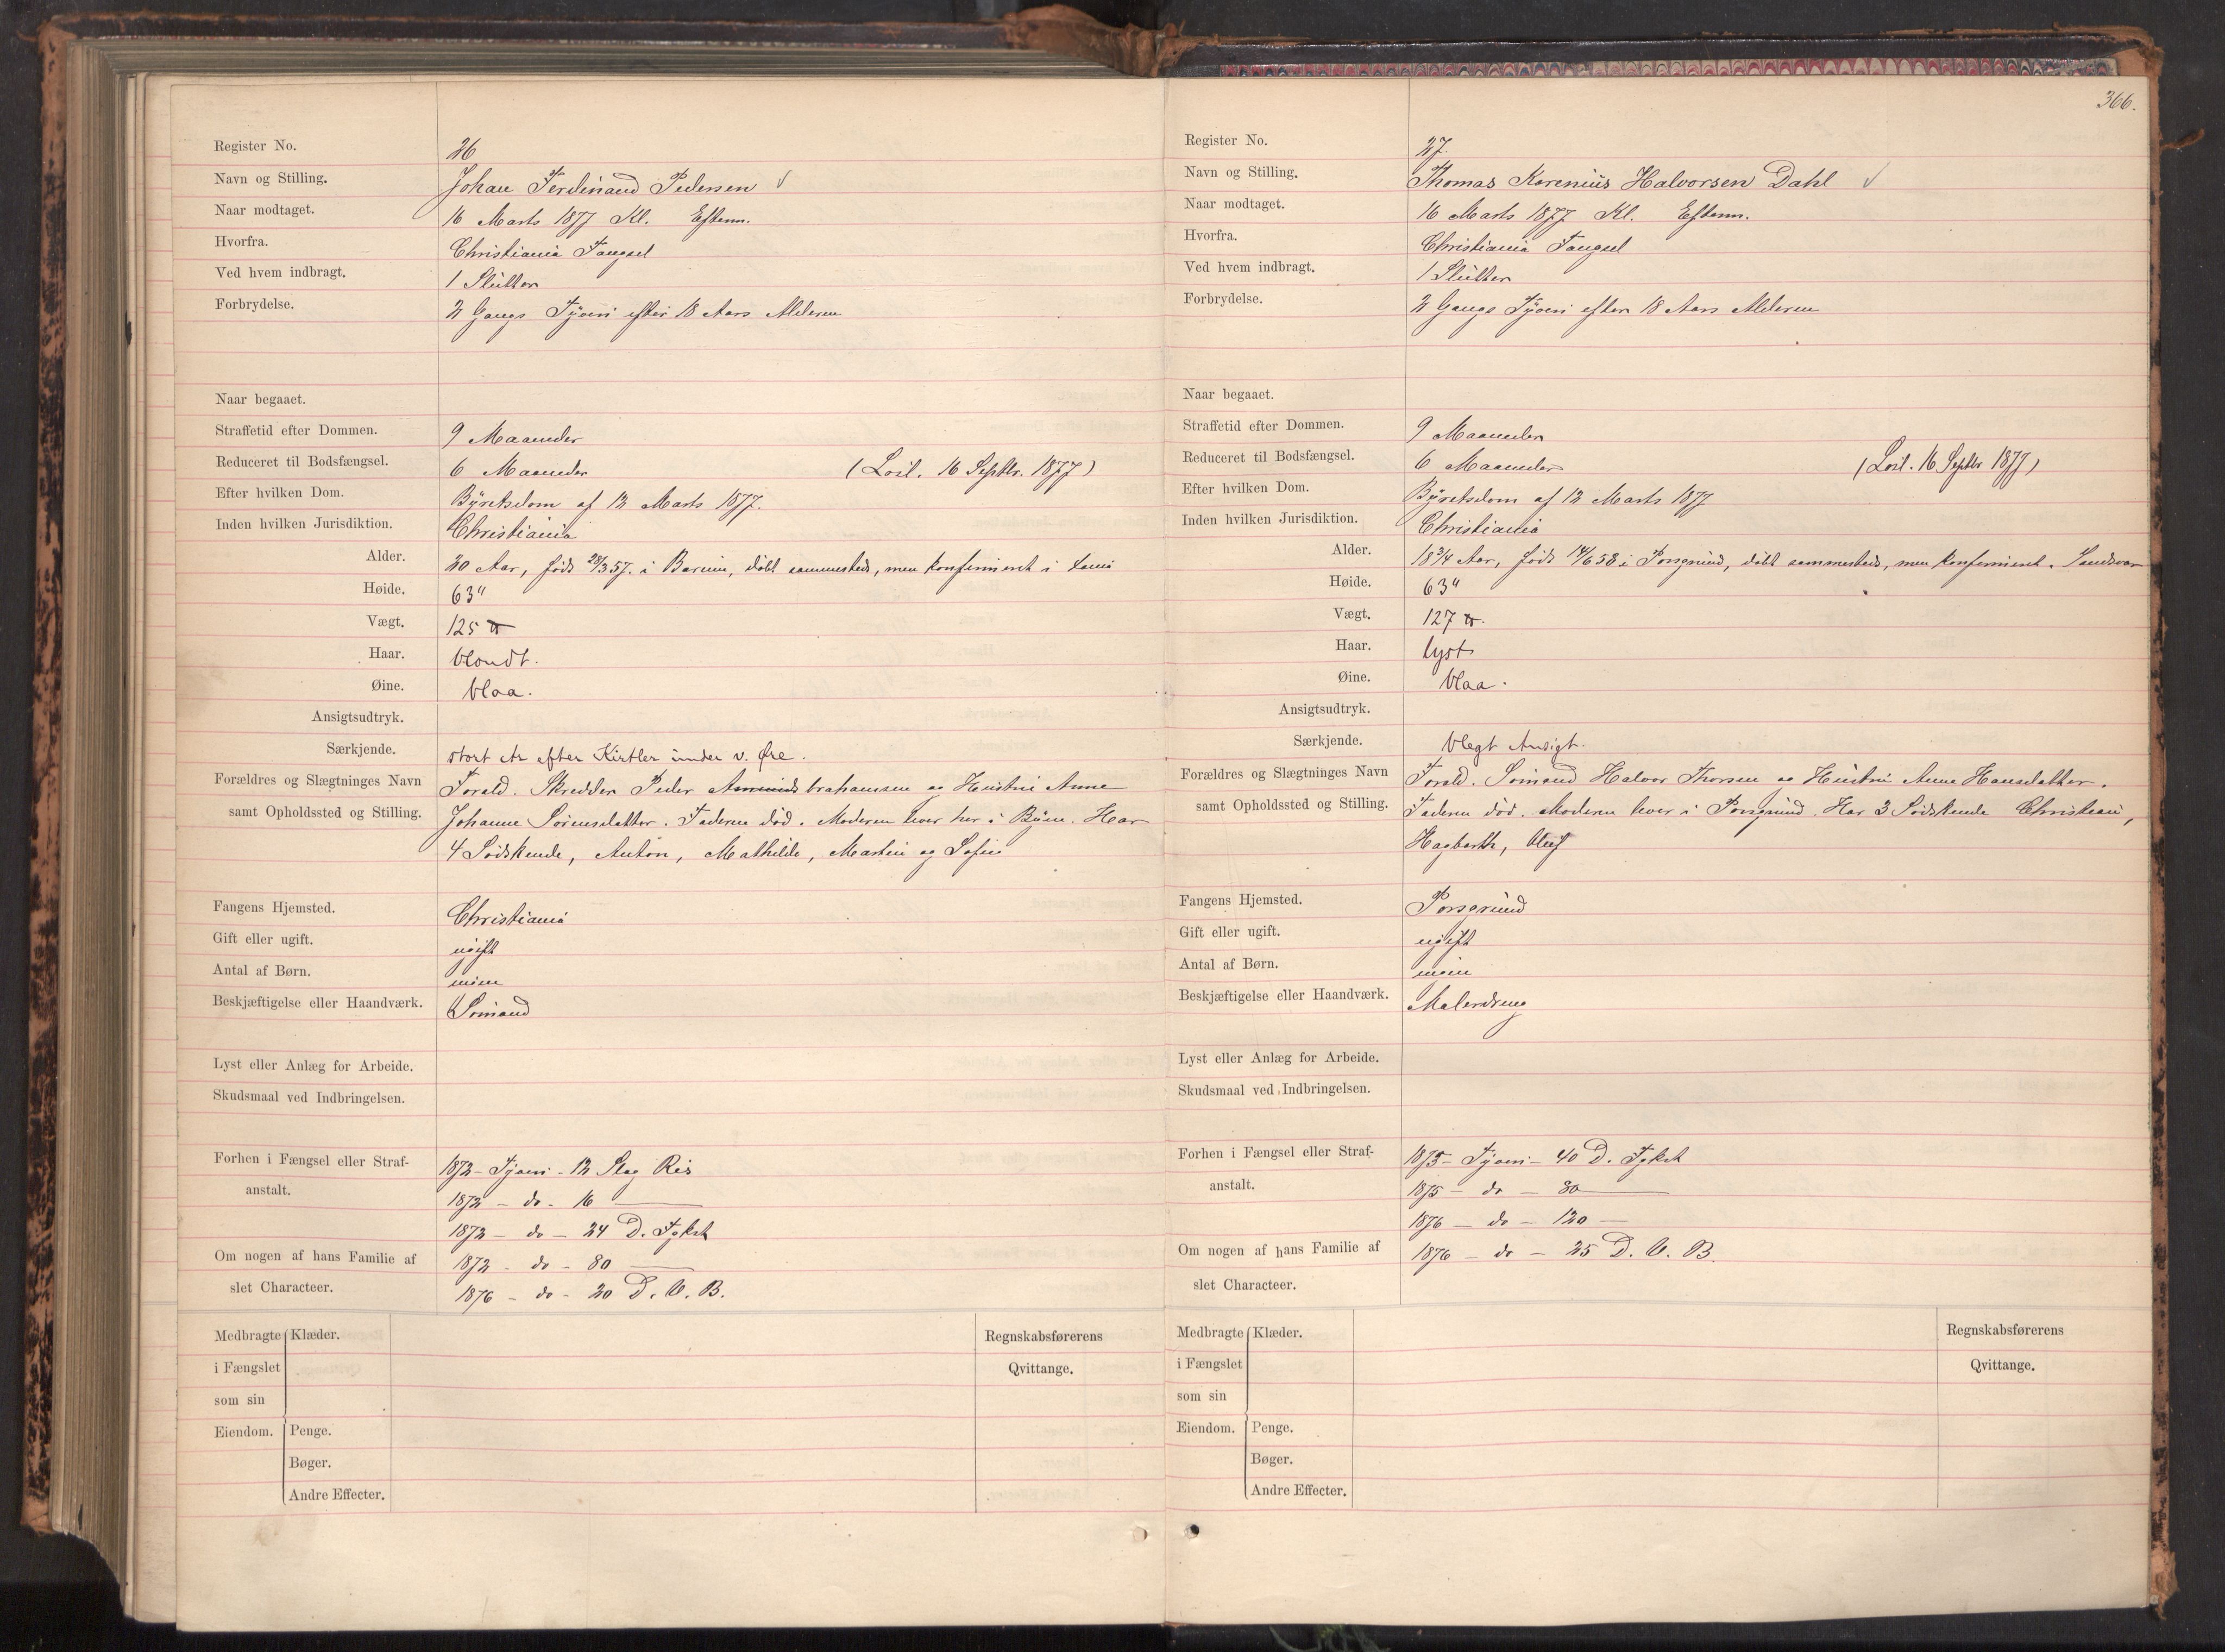 Register No. 26
Navn og Stilling. Johan Ferdinand Pedersen √
Naar modtaget. 16 Marts 1877 Kl. Efterm.
Hvorfra. Christiania Fængsel
Ved hvem indbragt. 1 Slutter
Forbrydelse. 2 Gangs Tyveri efter 18 Aars Alderen
Naar begaaet.
Straffetid efter Dommen. 9 Maaneder
Reduceret til Bodsfængsel. 6 Maaneder (Løsl. 16 Septbr. 1877)
Efter hvilken Dom. Byretsdom af 12 Marts 1877.
Inden hvilken Jurisdiktion. Christiania
Alder. 20 Aar, født 28/3 57. i Bærum, døbt sammesteds, men konfirmeret i
Høide. 63"
Vægt. 125 ℔
Haar. blondt.
Øine. blaa.
Ansigtsudtryk.
Særkjende. stort Ar efter Kirtler under v. Øre.
Forældres og Slægtninges Navn Foræld. Skrædder Peder og Hustru Anne
samt Opholdssted og Stilling. Johanne Sørensdatter. Faderen død. Moderen lever her i Byen. Har
4 Sødskende, Anton, Mathilde, Martin og Sofie
Fangens Hjemsted. Christiania
Gift eller ugift. ugift
Antal af Børn. ingen
Beskjæftigelse eller Haandværk. Sømand
Lyst eller Anlæg for Arbeide.
Skudsmaal ved Indbringelsen.
Forhen i Fængsel eller Straf- 1872 - Tyveri - 12 Slag Ris
anstalt. 1872 - do - 16 —
1872 - do - 24 D. Tgkst
Om nogen af hans Familie af 1872 - do - 80 —
slet Characteer. 1876 - do - 20 D. V. B.
Medbragte Klæder. Regnskabsførerens
i Fængslet Qvittange.
som sin
Eiendom. Penge.
Bøger.
Andre Effecter.
366.
Register No. 27.
Navn og Stilling. Thomas Karenius Halvorsen Dahl √
Naar modtaget. 16 Marts 1877 Kl. Efterm.
Hvorfra. Christiania Fængsel
Ved hvem indbragt. 1 Slutter
Forbrydelse. 2 Gange Tyveri efter 18 Aars Alderen
Naar begaaet.
Straffetid efter Dommen. 9 Maaneder
Reduceret til Bodsfængsel. 6 Maaneder (Løsl. 16 Septbr 1877)
Efter hvilken Dom. Byretsdom af 12 Marts 1877
Inden hvilken Jurisdiktion. Christiania
Alder. 18 3/4 Aar, født 14/6 58 i Porsgrund, døbt sammesteds, men konfirmeret. Sandsvær
Høide. 63"
Vægt. 127 ℔.
Haar. lyst
Øine. blaa.
Ansigtsudtryk.
Særkjende. blegt Ansigt.
Forældres og Slægtninges Navn Foræld. Sømand Halvor Thorsen og Hustru Anne Hansdatter.
samt Opholdssted og Stilling. Faderen død. Moderen lever i Porsgrund. Har 3 Sødskende Christian,
Hagbarth, Oluf
Fangens Hjemsted. Porsgrund
Gift eller ugift. ugift
Antal af Børn. ingen
Beskjæftigelse eller Haandværk. Malerdreng
Lyst eller Anlæg for Arbeide.
Skudsmaal ved Indbringelsen.
Forhen i Fængsel eller Straf- 1875 - Tyveri - 40 D. Tgkst
anstalt. 1875 - do - 80 —
1876 - do - 120 —
Om nogen af hans Familie af 1876 - do - 25 D. V. B.
slet Characteer.
Medbragte Klæder. Regnskabsførerens
i Fængslet Qvittange.
som sin
Eiendom. Penge.
Bøger.
Andre Effecter.